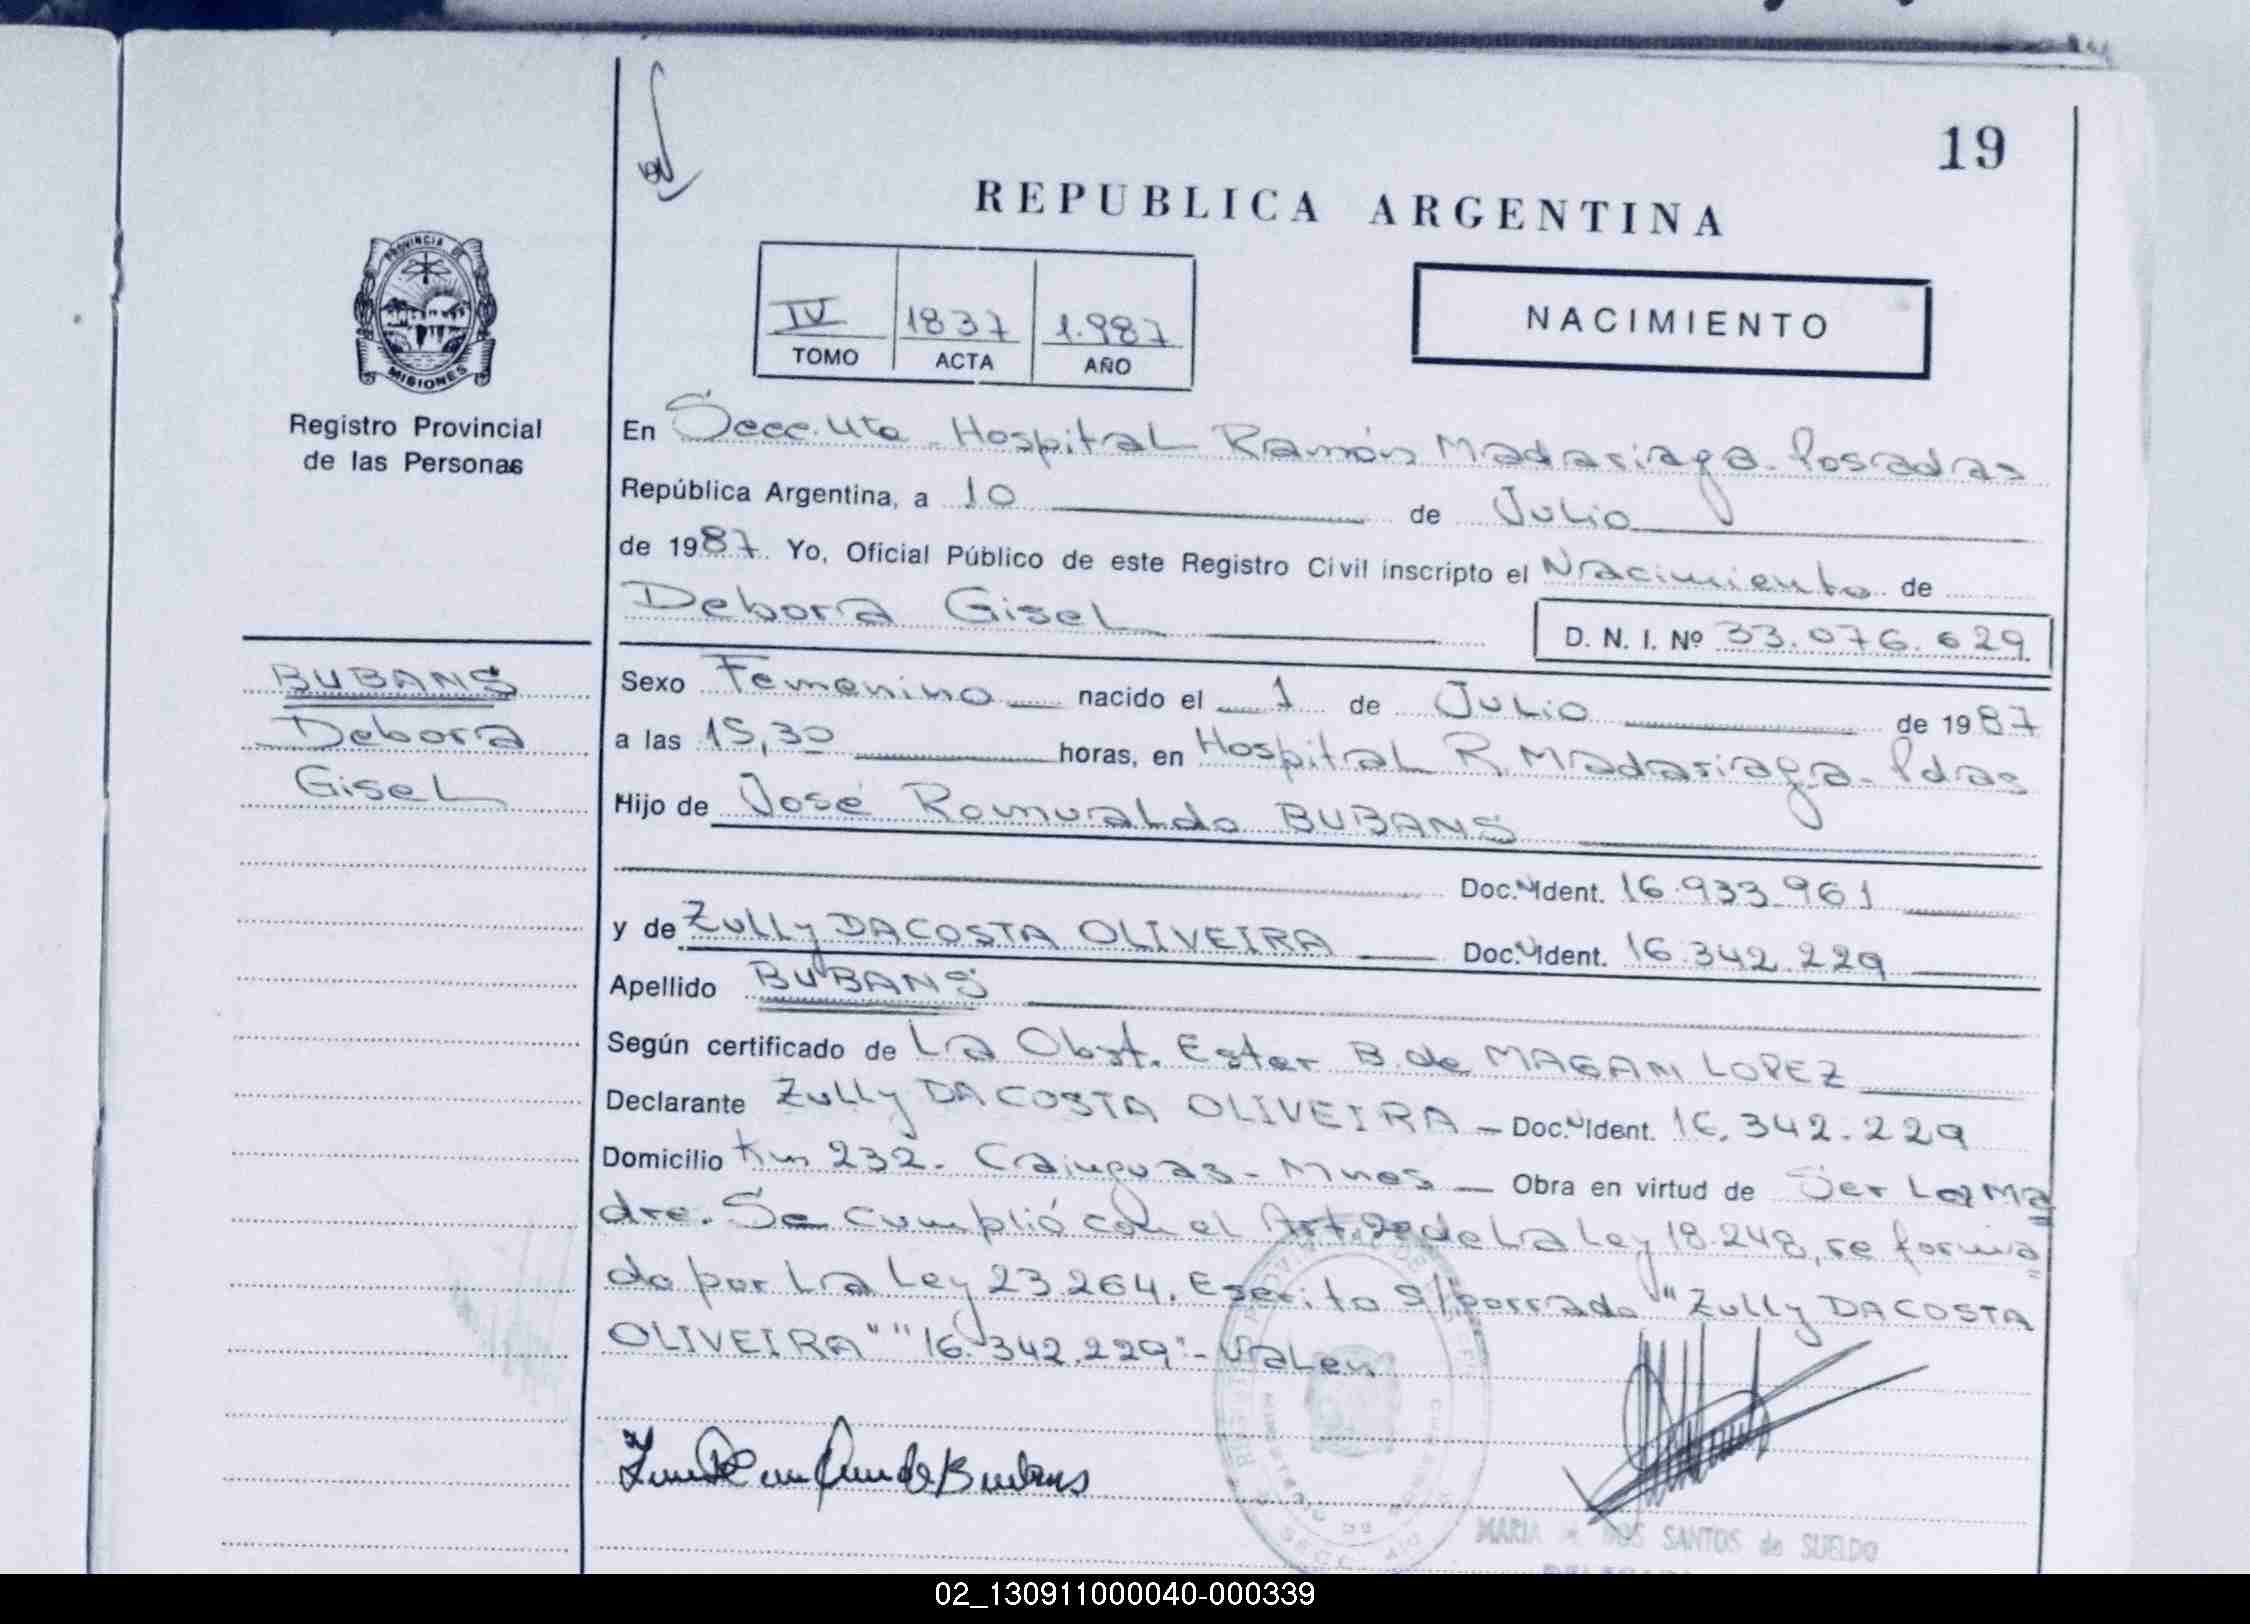 19
REPUBLICA ARGENTINA
PROVINCIA DE
MISIONES
Registro Provincial
de las Personas
IV 1837 1.987
TOMO ACTA AÑO
NACIMIENTO
En Secc. 4ta - Hospital Ramón Madariaga - Posadas
República Argentina, a 10 de Julio
de 1987. Yo, Oficial Público de este Registro Civil inscripto el Nacimiento de
Debora Gisel
D. N. I. Nº 33.076.629
BUBANS
Debora
Gisel
Sexo Femenino nacido el 1 de Julio de 1987
a las 15,30 horas, en Hospital R. Madariaga - Pdas
Hijo de José Romualdo BUBANS
Doc. Ident. 16.933.961
y de Zully DACOSTA OLIVEIRA Doc. Ident. 16.342.229
Apellido BUBANS
Según certificado de La Obst. Ester B. de MAGAN LOPEZ
Declarante Zully DA COSTA OLIVEIRA - Doc. Ident. 16.342.229
Domicilio Km 232. Cainguas - Mnes - Obra en virtud de Ser La Ma
dre. Se cumplió con el Art. de La Ley 18.248, re forma
do por La Ley 23.264. Escrito s/borrado "Zully DA COSTA
OLIVEIRA" "16.342.229" - Valen
de Bubans
MARIA DOS SANTOS de SUELDO
02_130911000040-000339